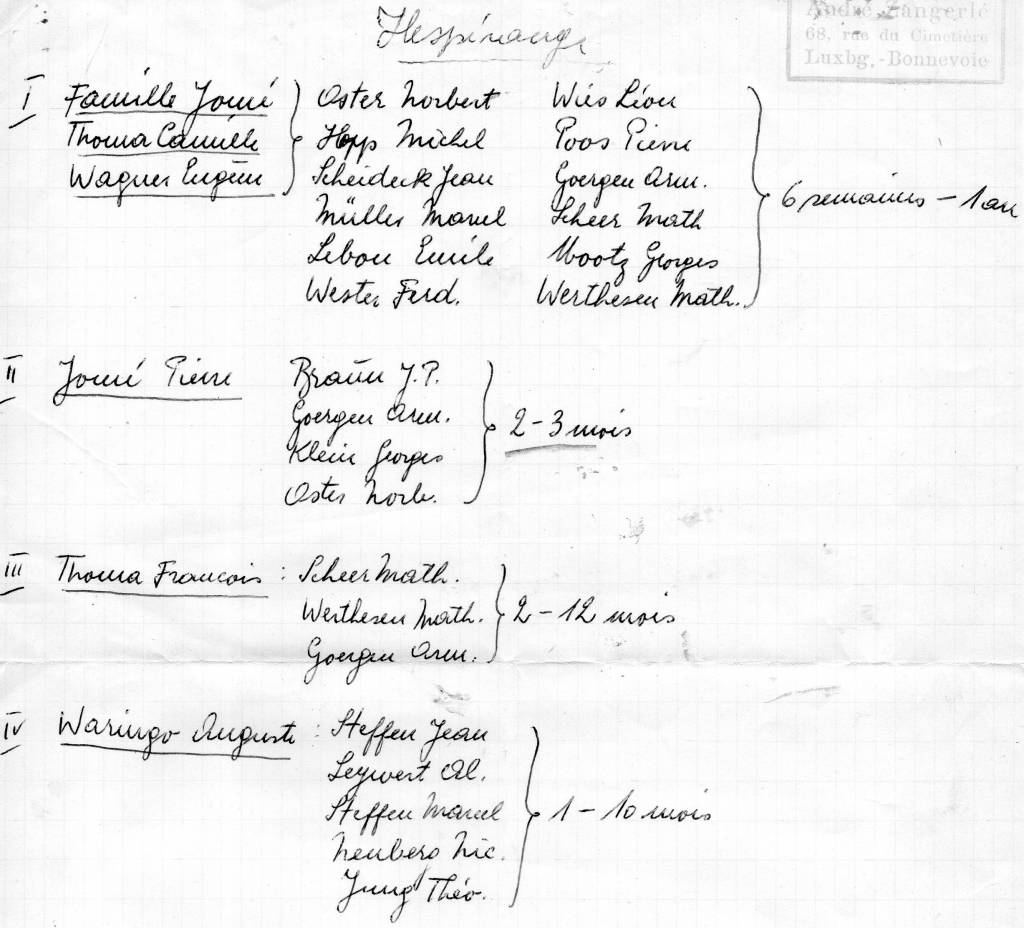 Hespérange
André Zangerlé
68, rue du Cimetière
Luxbg.-Bonnevoie
I Famille Jomé } Oster Norbert Wiés Léon
Thoma Camille Hopp Michel Poos Pierre
Wagner Eugène Scheideck Jean Goergen Arm.
Müller Marcel Scheer Math } 6 semaines – 1 an
Lebon Emile Mootz Georges
Wester Ferd. Werthesen Math.
II Jomé Pierre Braun J.P.
Goergen Arm. } 2 – 3 mois
Klein Georges
Oster Norb.
III Thoma Francois : Scheer Math.
Werthesen Math. } 2 – 12 mois
Goergen Arm.
IV Waringo Auguste : Steffen Jean
Leywert Al.
Steffen Marcel } 1 – 10 mois
Neuberg Nic.
Jung Théo.